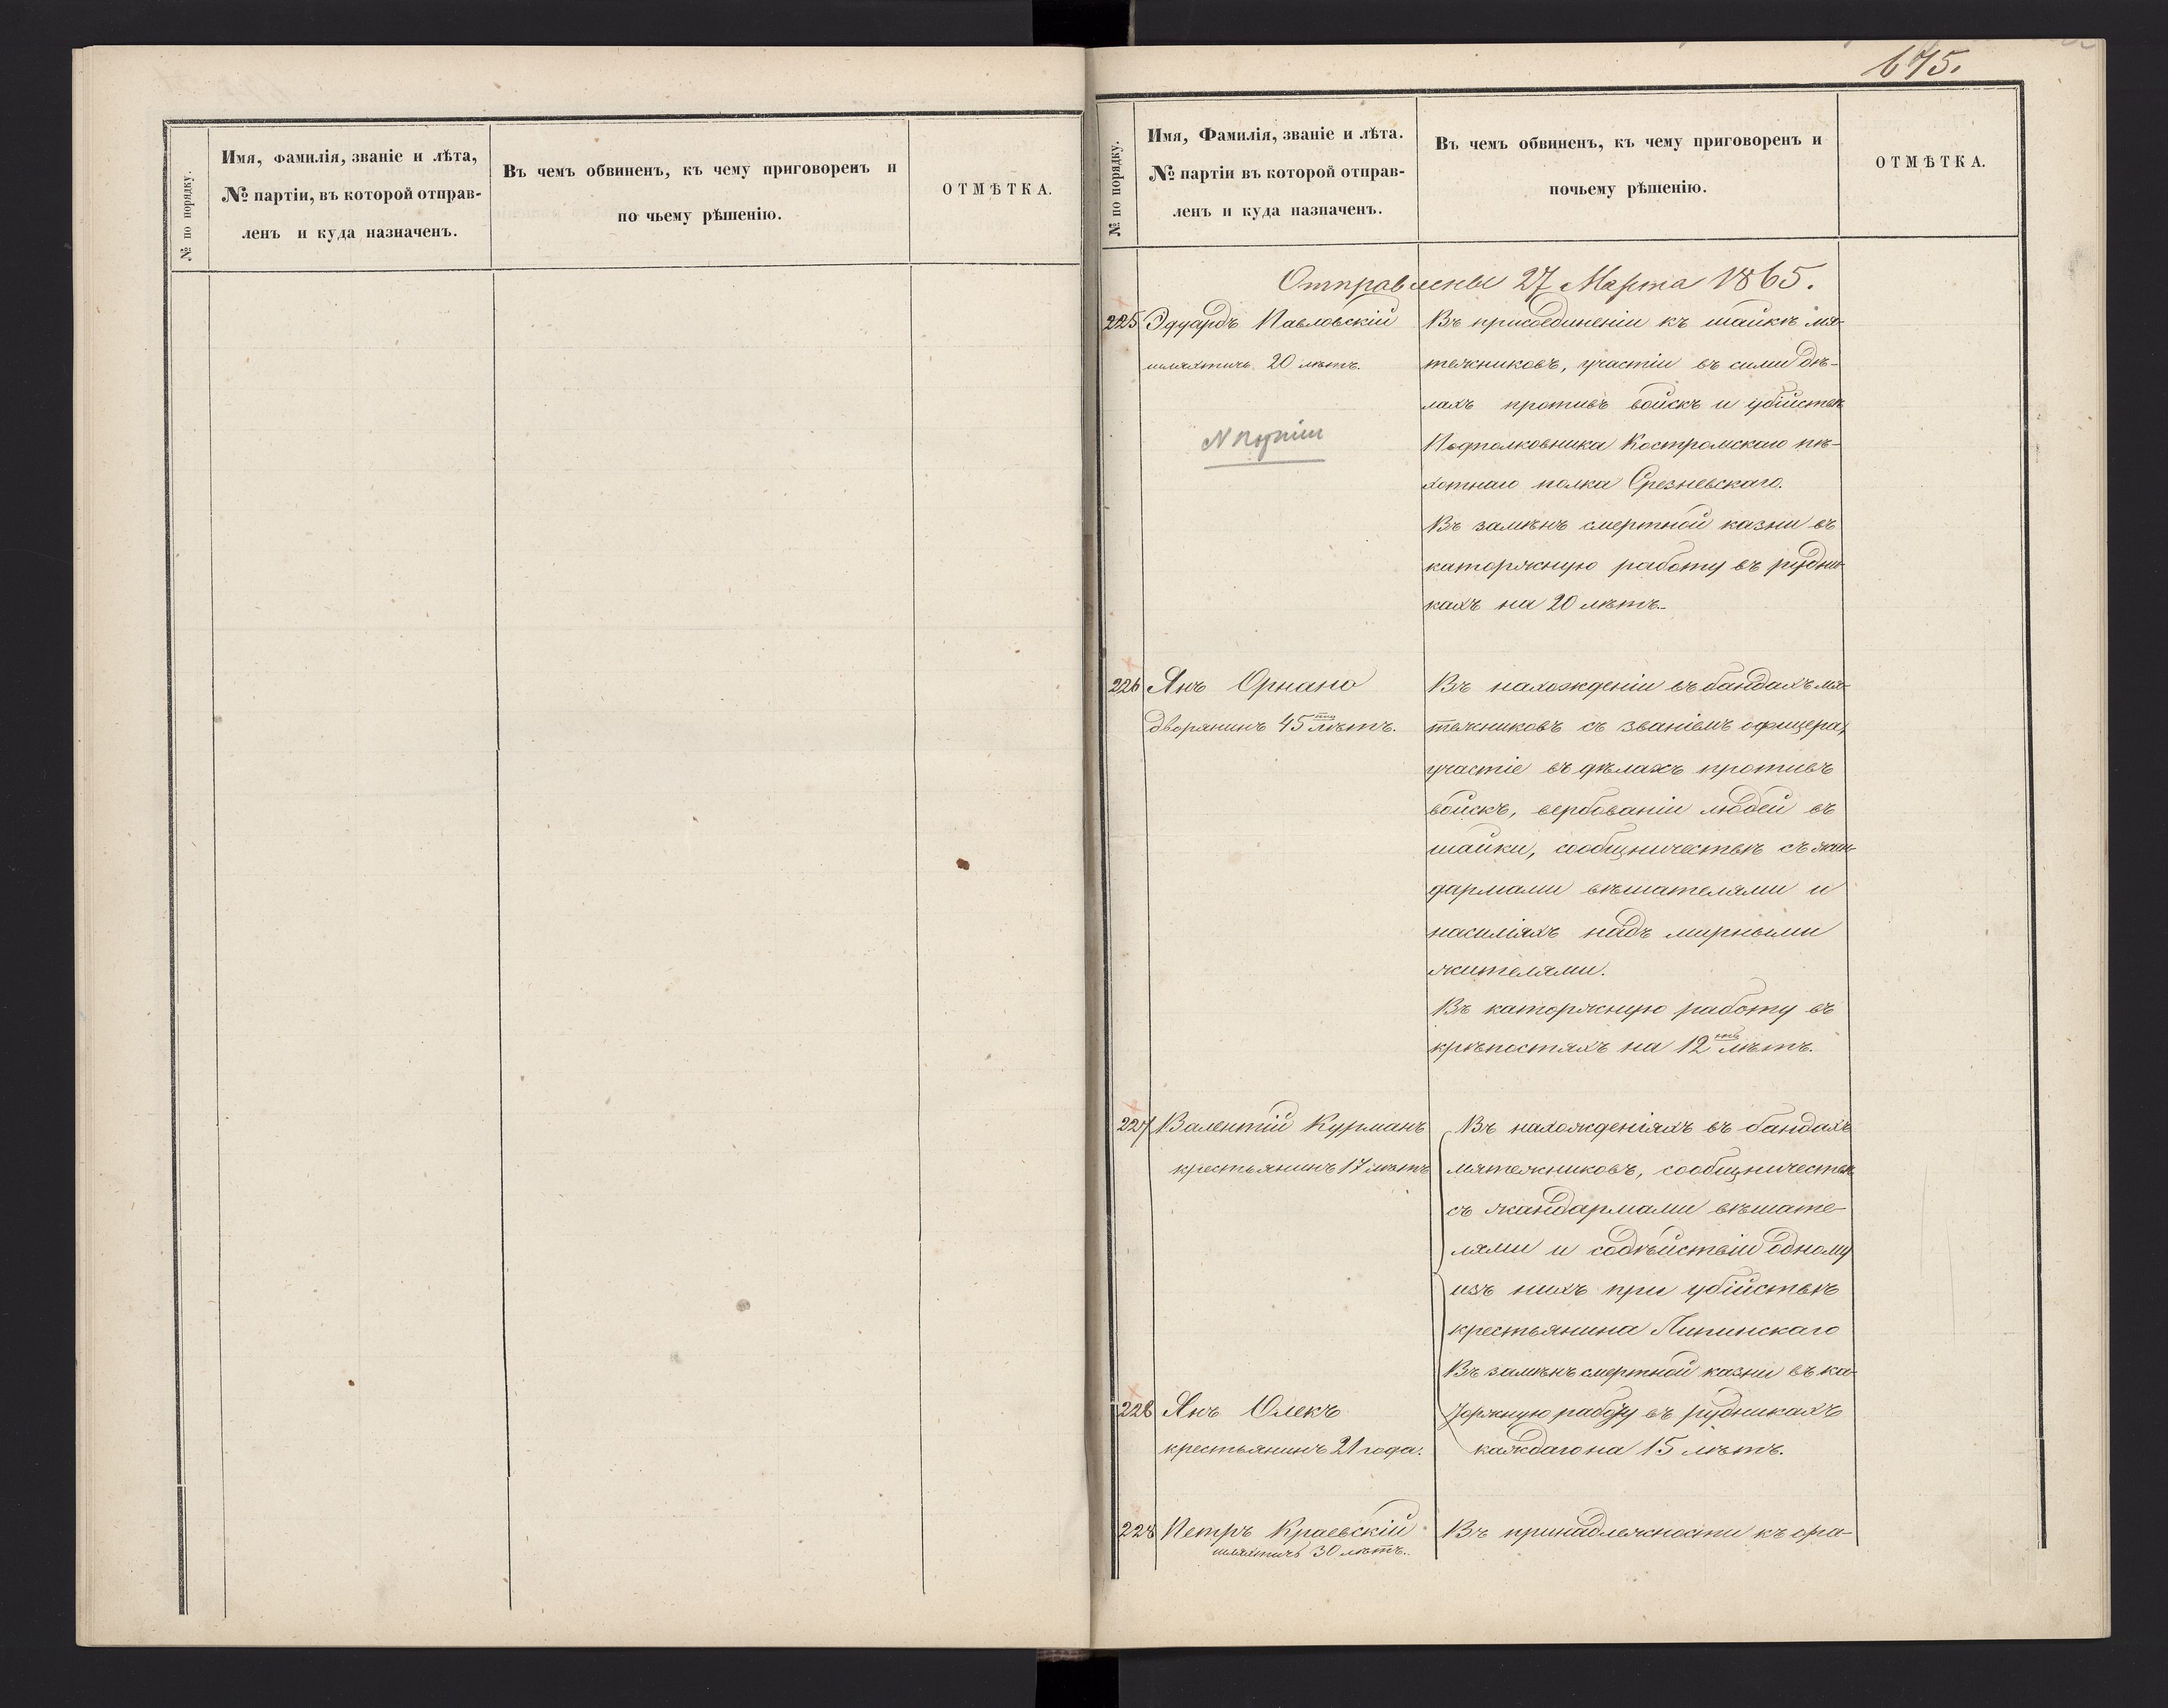 № по порядку.
Имя, Фамилія, званіе и лѣта,
№ партіи, въ которой отправ-
ленъ и куда назначенъ.
Въ чемъ обвиненъ, къ чему приговоренъ и
по чьему рѣшенію.
ОТМѢТКА.
675.
№ по порядку.
Имя, Фамилія, званіе и лѣта.
№ партіи въ которой отправ-
ленъ и куда назначенъ.
Въ чемъ обвиненъ, къ чему приговоренъ и
почьему рѣшенію.
ОТМѢТКА.
Отправлены 27 Марта 1865.
225 Эдуардъ Павловскій
шляхтичъ 20 лѣтъ.
N партіи
Въ присоединеніи къ шайкѣ мя-
тежниковъ, участіи въ сими дѣ-
лахъ противъ войскъ и убійствѣ
Подполковника Костромскаго пѣ-
хотнаго полка Срезневскаго.
Въ замѣнъ смертной казни въ
каторжную работу въ рудни-
кахъ на 20 лѣтъ.
226 Янъ Орнано
дворянинъ 45 ти лѣтъ.
Въ нахожденіи въ бандахъ мя-
тежниковъ съ званіемъ офицера,
участіе въ дѣлахъ противъ
войскъ, вербованіи людей въ
шайки, сообщничествѣ съ жан-
дармами вѣшателями и
насиліяхъ надъ мирными
жителями.
Въ каторжную работу въ
крѣпостяхъ на 12 ть лѣтъ.
227 Валентій Курманъ
крестьянинъ 17 лѣтъ
Въ нахожденіяхъ въ бандахъ
мятежниковъ, сообщничествѣ
съ жандармами вѣшате-
лями и содѣйствіи одному
изъ нихъ при убійствѣ
крестьянина Липинскаго
Въ замѣнъ смертной казни въ ка-
торжную работу въ рудникахъ
каждаго на 15 лѣтъ.
228 Янъ Олекъ
крестьянинъ 21 года.
228 Петръ Краевскій
шляхтичъ 30 лѣтъ.
Въ принадлежности къ орга-